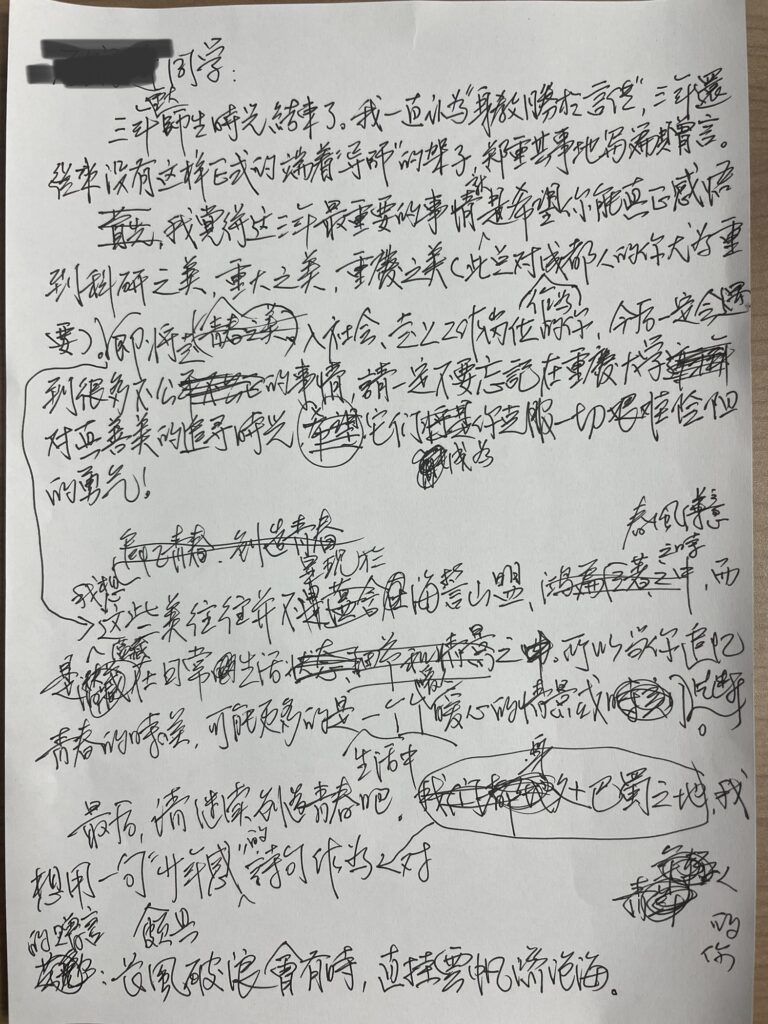 同学：
三年师生時光結束了。我一直认为“身教勝於言传”，三年還
從来没有这样正式的端着“导师”的架子，郑重其事地写篇贈言。
首先，我覚得这三年最重要的事情就是希望你能真正感悟
到科研之美，重大之美，重慶之美（此点对成都人的你尤为重
要）。即将 青春之美 入社会、走上工作岗位的你，今后一定会遇
到很多不公 的事情，請一定不要忘記在重慶大学
对真善美的追寻時光，希望它们成为你克服一切艱难险阻
的勇气！
創造青春
春風得意
我想 呈現於 之時
这些美往往并不 海誓山盟，鴻篇 之中，而
是 藏在日常生活 情景之中。所以当你追忆
青春的味道，可能更多的是一个个暖心的情景或 。
生活中
最后，请继续創造青春吧。 巴蜀之地，我
想用一句“少年感”的詩句作为 对
人
的贈言 的
你
：長風破浪會有時，直挂雲帆济滄海。